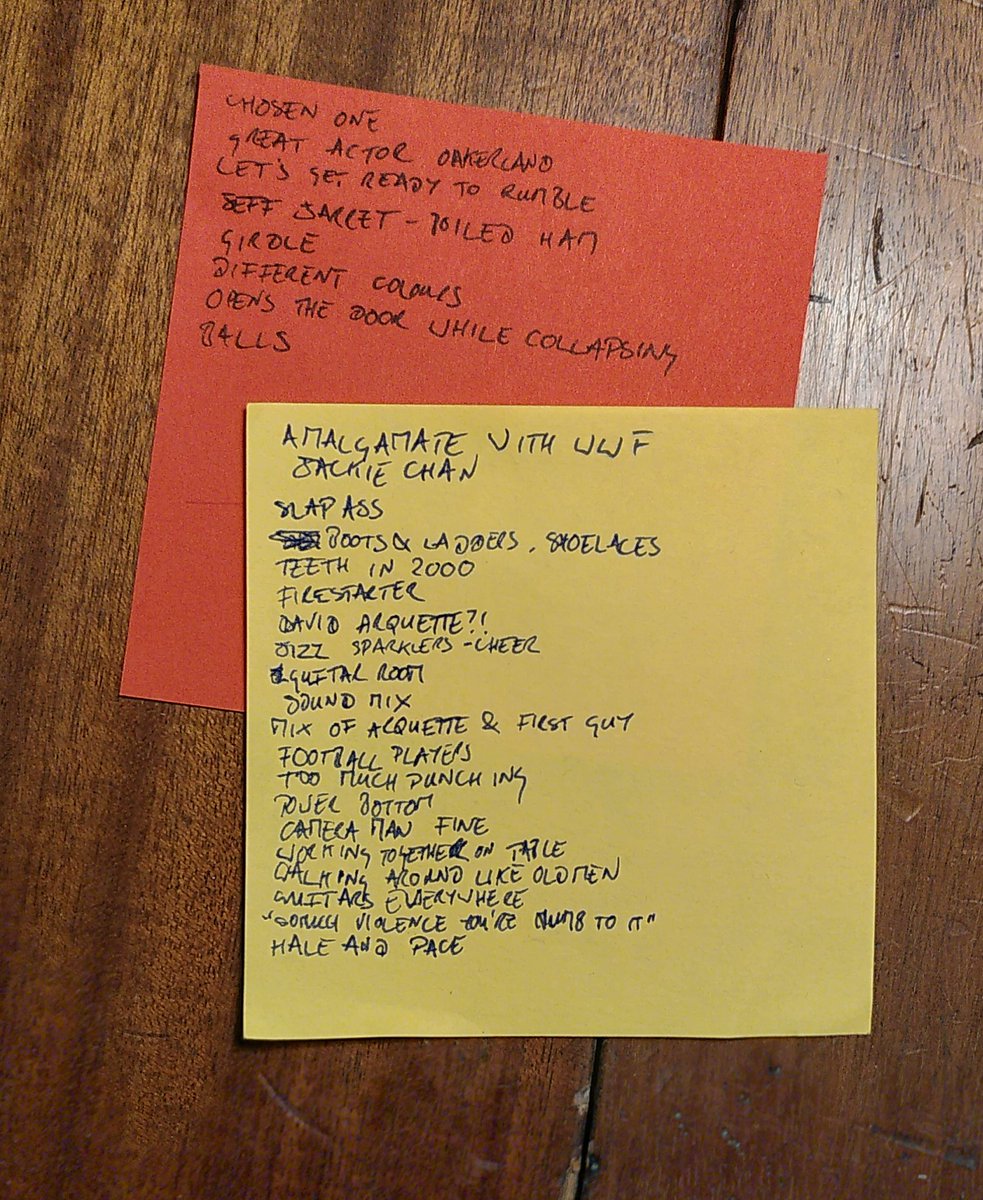 CHOSEN ONE
GREAT ACTOR OAKERLAND
LET'S GET READY TO RUMBLE
JEFF JARRET - BOILED HAM
GIRDLE
DIFFERENT COLOURS
OPENS THE DOOR WHILE COLLAPSING
BALLS
AMALGAMATE WITH WWF
JACKIE CHAN
SLAP ASS
BOOTS & LADDERS, SHOELACES
TEETH IN 2000
FIRESTARTER
DAVID ARQUETTE?!
JIZZ SPARKLERS - CHEER
GUITAR ROOM
SOUND MIX
MIX OF ARQUETTE & FIRST GUY
FOOTBALL PLAYERS
TOO MUCH PUNCHING
POWER BOTTOM
CAMERA MAN FINE
WORKING TOGETHER ON TABLE
WALKING AROUND LIKE OLD MEN
GUITARS EVERYWHERE
"SO MUCH VIOLENCE YOU'RE NUMB TO IT"
HALE AND PACE